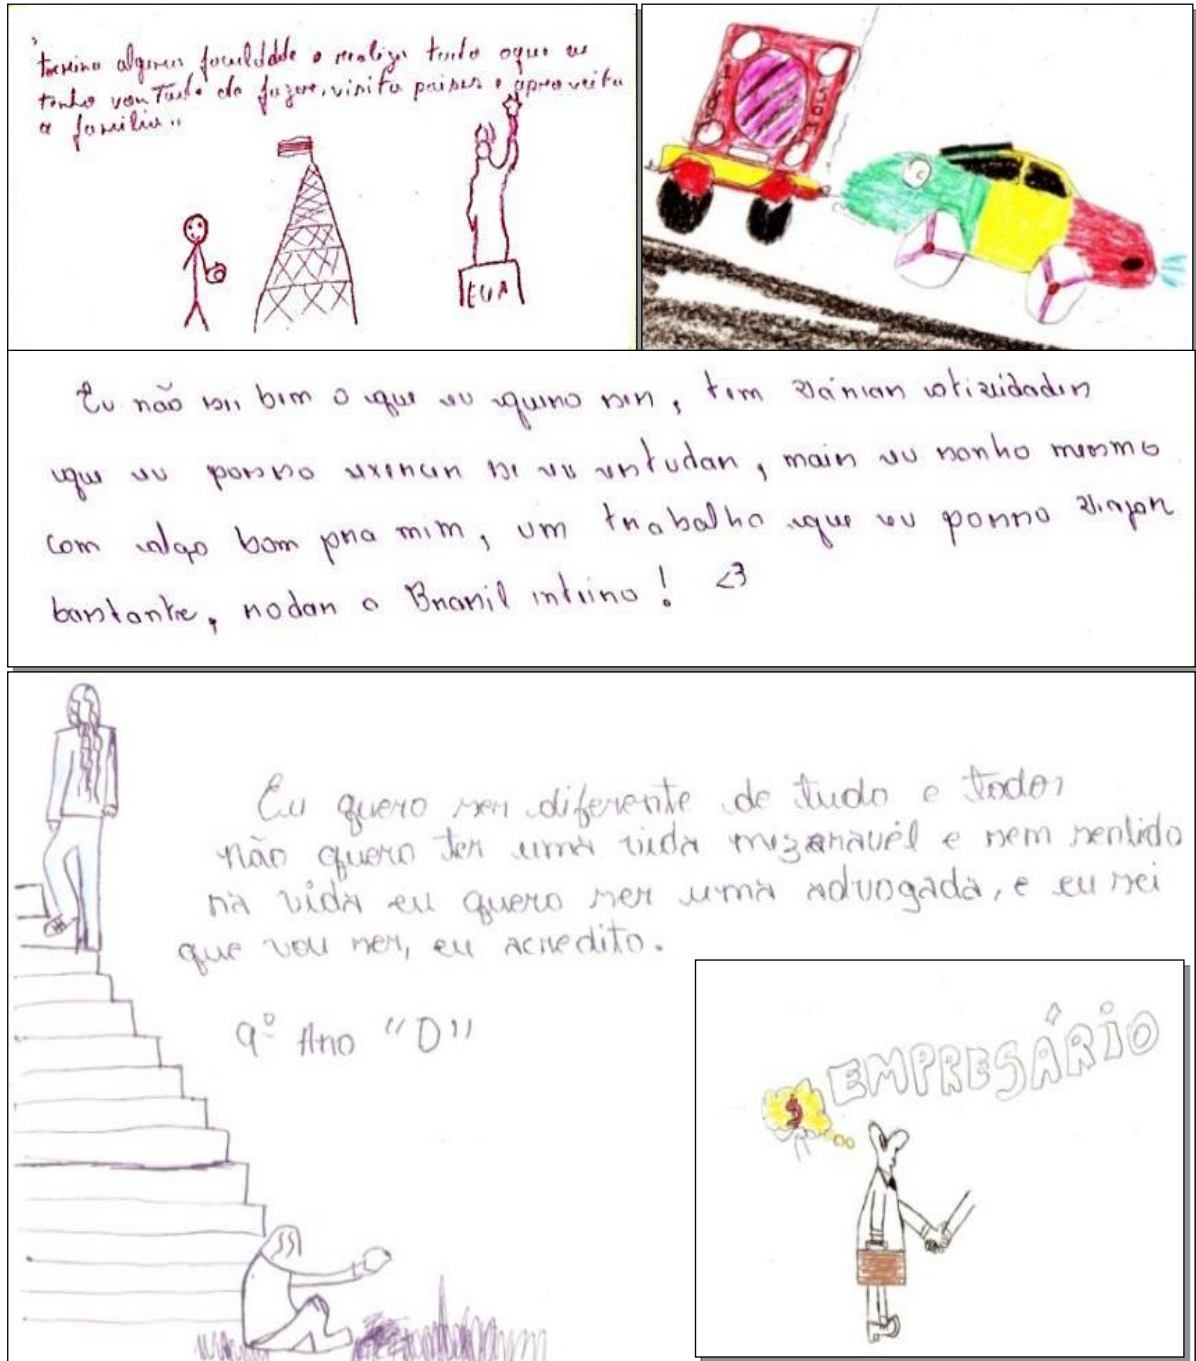 termino alguma faculdade e realizo tudo oque eu
tenho vontade de fazer, visita paises e aproveita
a familia..
EUA
SOM
Eu não sei bem o que eu quero ser, tem várias atividades
que eu posso exercer se eu estudar, mais eu sonho mesmo
com algo bom pra mim, um trabalho que eu posso viajar
bastante, rodar o Brasil inteiro! <3
Eu quero ser diferente de tudo e todos
não quero ter uma vida mizaravél e nem sentido
na vida eu quero ser uma advogada, e eu sei
que vou ser, eu acredito.
9º Ano "D"
EMPRESÁRIO